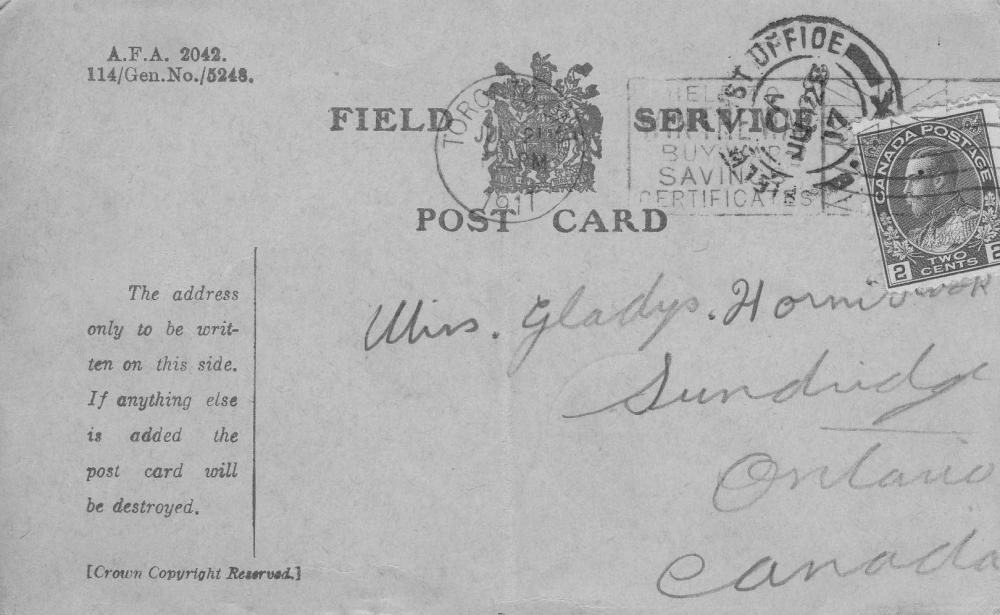 A.F.A. 2042.
114/Gen.No./5248.
FIELD SERVICE
POST CARD
TORONTO
PM
1917
HELP TO
BUY
SAVIN
CERTIFICATES
ST OFFICE
17
CANADA POSTAGE
2 TWO CENTS 2
The address
only to be writ-
ten on this side.
If anything else
is added the
post card will
be destroyed.
[Crown Copyright Reserved.]
Miss. Gladys.
Sundridge
Ontario
Canada